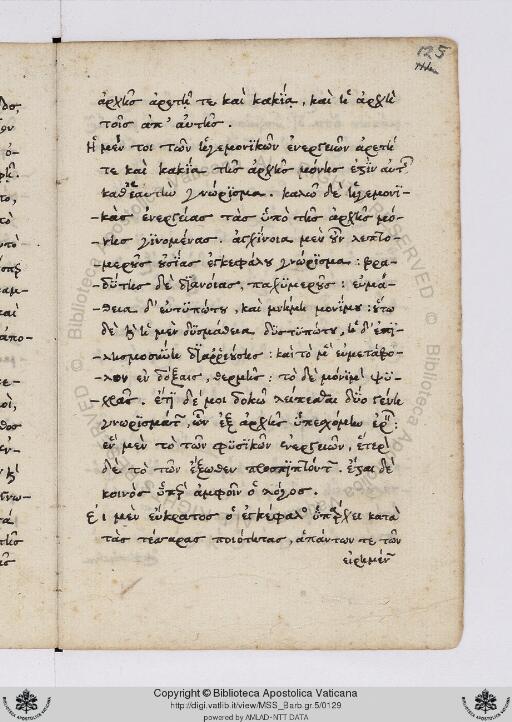 125
ἀρχῆς ἀρετή τε καὶ κακία, καὶ ἡ ἀρχὴ
τοῖς ἀπ' αὐτῆς.
Ἡ μέν τοι τῶν ἡγεμονικῶν ἐνεργειῶν ἀρετή
τε καὶ κακία τῆς ἀρχῆς μόνης ἐστὶν αὐτῆς
καθ' ἑαυτὴν γνώρισμα. καλῶ δὲ ἡγεμονι-
-κὰς ἐνεργείας τὰς ὑπὸ τῆς ἀρχῆς μό-
-νης γινομένας. ἀγχίνοια μὲν οὖν λεπτο-
-μεροῦς οὐσίας ἐγκεφάλου γνώρισμα: βρα-
-δύτης δὲ διανοίας, παχυμεροῦς: εὐμά-
-θεια δ' εὐτυπώτου, καὶ μνήμη μονίμου: οὕτω
δὲ καὶ ἡ μὲν δυσμάθεια δυστυπώτου, ἡ δ' ἐπι-
-λησμοσύνη διαρρεούσης: καὶ τὸ μὲν εὐμετάβο-
-λον ἐν δόξαις, θερμῆς: τὸ δὲ μόνιμον ψυ-
-χρᾶς. ἔτι δέ μοι δοκῶ λείπεσθαι δύο γένη
γνωρισμάτων, ὧν ἐξ ἀρχῆς ὑπεσχόμην ἐρεῖν:
ἓν μὲν τὸ τῶν φυσικῶν ἐνεργειῶν, ἕτερον
δὲ τὸ τῶν ἔξωθεν προσπιπτόντων. ἔσται δὲ
κοινὸς ὑπὲρ ἀμφοῖν ὁ λόγος.
Εἰ μὲν εὔκρατος ὁ ἐγκέφαλος ὑπάρχει κατὰ
τὰς τέσσαρας ποιότητας, ἁπάντων τε τῶν
εἰρημένων
Copyright © Biblioteca Apostolica Vaticana
http://digi.vatlib.it/view/MSS_Barb.gr.5/0129
powered by AMLAD-NTT DATA